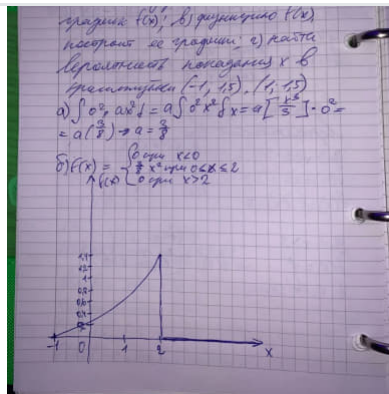 график f(x); в) функцию F(x),
построить ее график; г) найти
вероятность попадания x в
промежутки (-1, 1,5), (1; 1,5)
а) ∫ 0², ax² d = a∫0² x² dx = a[x³/3] · 0² =
= a(3/8) → a = 3/8
б) f(x) = {0 при x<0
3/8 x² при 0≤x≤2
0 при x>2
f(x)
-1 0 1 2 x